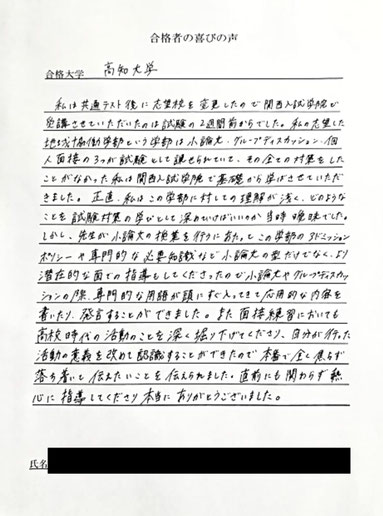 合格者の喜びの声
合格大学 高知大学
私は共通テスト後に志望校を変更したので関西入試学院で
受講させていただいたのは試験の2週間前からでした。私の志望した
地域協働学部という学部は小論文、グループディスカッション、個
人面接の3つが試験として課せられていて、その全ての対策をした
ことがなかった私は関西入試学院で基礎から学ばさせていただ
きました。正直、私はこの学部に対しての理解が浅く、どのような
ことを試験対策の学びとして深めていけばいいのか当時曖昧でした。
しかし、先生が小論文の授業を行うにあたってこの学部のアドミッション
ポリシーや専門的な必要知識など小論文の型だけでなく、より
潜在的な面での指導もしてくださったので小論文やグループディスカッ
ションの際、専門的な用語が頭にすぐ入ってきて応用的な内容を
書いたり、発言することができました。また面接練習においても
高校時代の活動のことを深く掘り下げてくださり、自分が行った
活動の意義を改めて認識することができたので本番で全く焦らず
落ち着いて伝えたいことを伝えられました。直前にも関わらず熱
心に指導してくださり本当にありがとうございました。
氏名